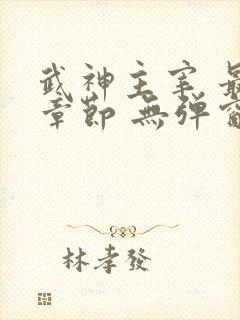 武神主宰 最
章節 無弹窗
林孝發